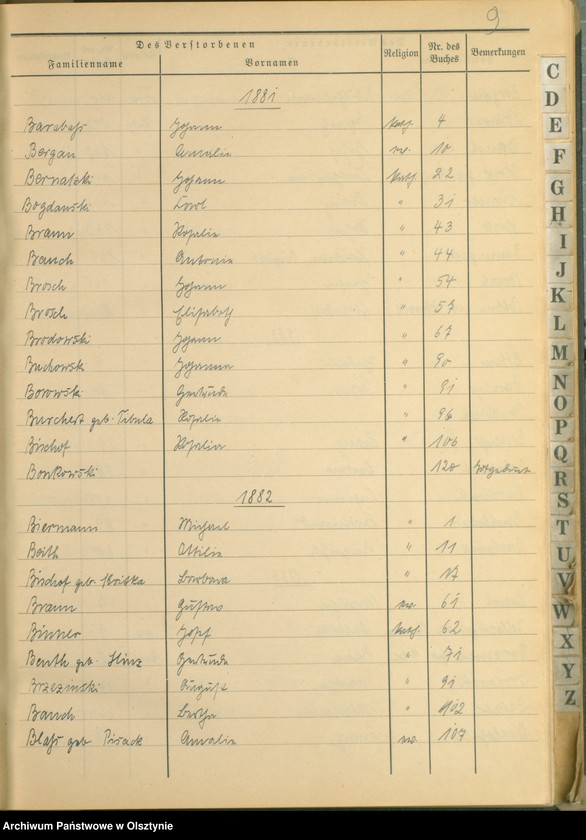 9
Des Verstorbenen
Familienname Vornamen Religion Nr. des Buches Bemerkungen
1881
Barabasz Johann kath. 4
Bergau Amalie ev. 10
Bernatzki Johann kath. 22
Bogdanski Karl " 31
Braun Rosalie " 43
Bauch Antonie " 44
Brosch Johann " 54
Brosch Elisabeth " 57
Brodowski Johann " 67
Buchowski Johanna " 90
Borowski Gertrude " 91
Burchert geb. Tibula Rosalie " 96
Bischof Rosalie " 106
Bonkowski 120 Totgeburt
1882
Biermann Michael " 1
Beith Ottilie " 11
Bischof geb. Barbara " 17
Braun Gustav ev. 61
Binner Josef kath. 62
Benth geb. Hinz Gertrude " 71
Brzezinski August " 91
Bauch Bertha " 102
Blass geb. Pisack Amalie ev. 107
C
D
E
F
G
H
I
J
K
L
M
N
O
P
Q
R
S
T
U
V
W
X
Y
Z
Archiwum Państwowe w Olsztynie